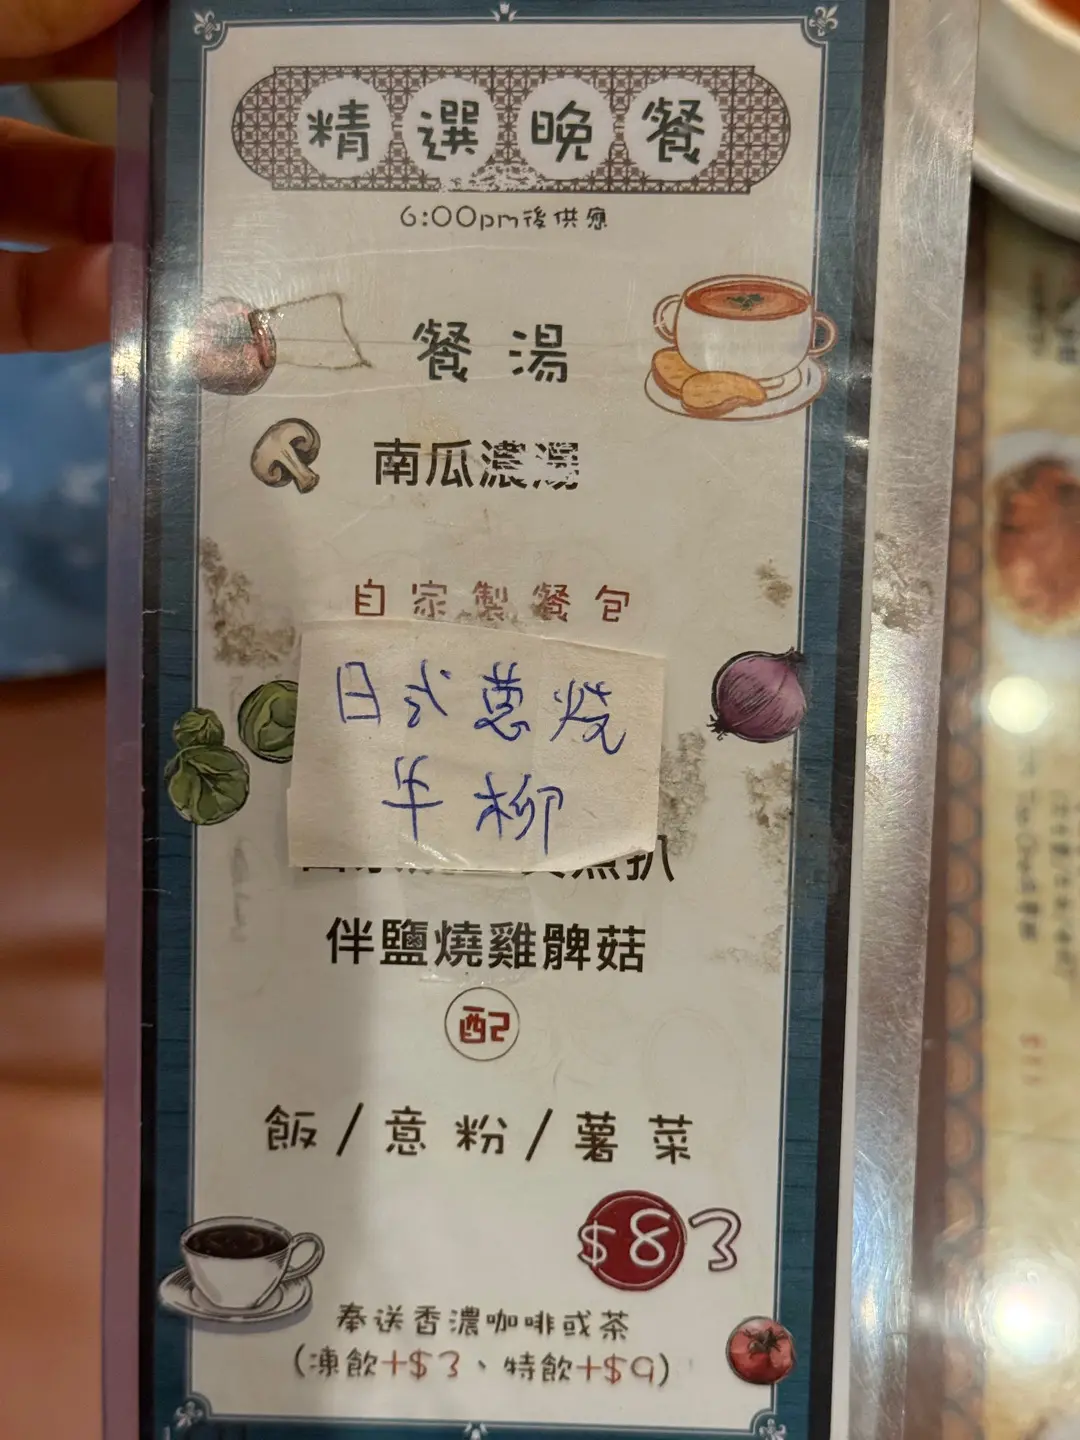 精選晚餐
6:00pm後供應
餐湯
南瓜濃湯
自家製餐包
日式蔥燒
牛柳
魚扒
伴鹽燒雞髀菇
配
飯/意粉/薯菜
$83
奉送香濃咖啡或茶
(凍飲+$3、特飲+$9)